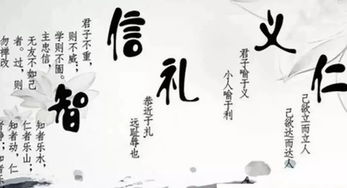 仁
己欲立而立人
己欲达而达人
义
君子喻于义
小人喻于利
礼
恭近于礼
远耻辱也
信
君子不重,
则不威;
学则不固。
主忠信,
无友不如己
者。过,则
勿惮改
智
知者乐水,
仁者乐山;
知者动,仁